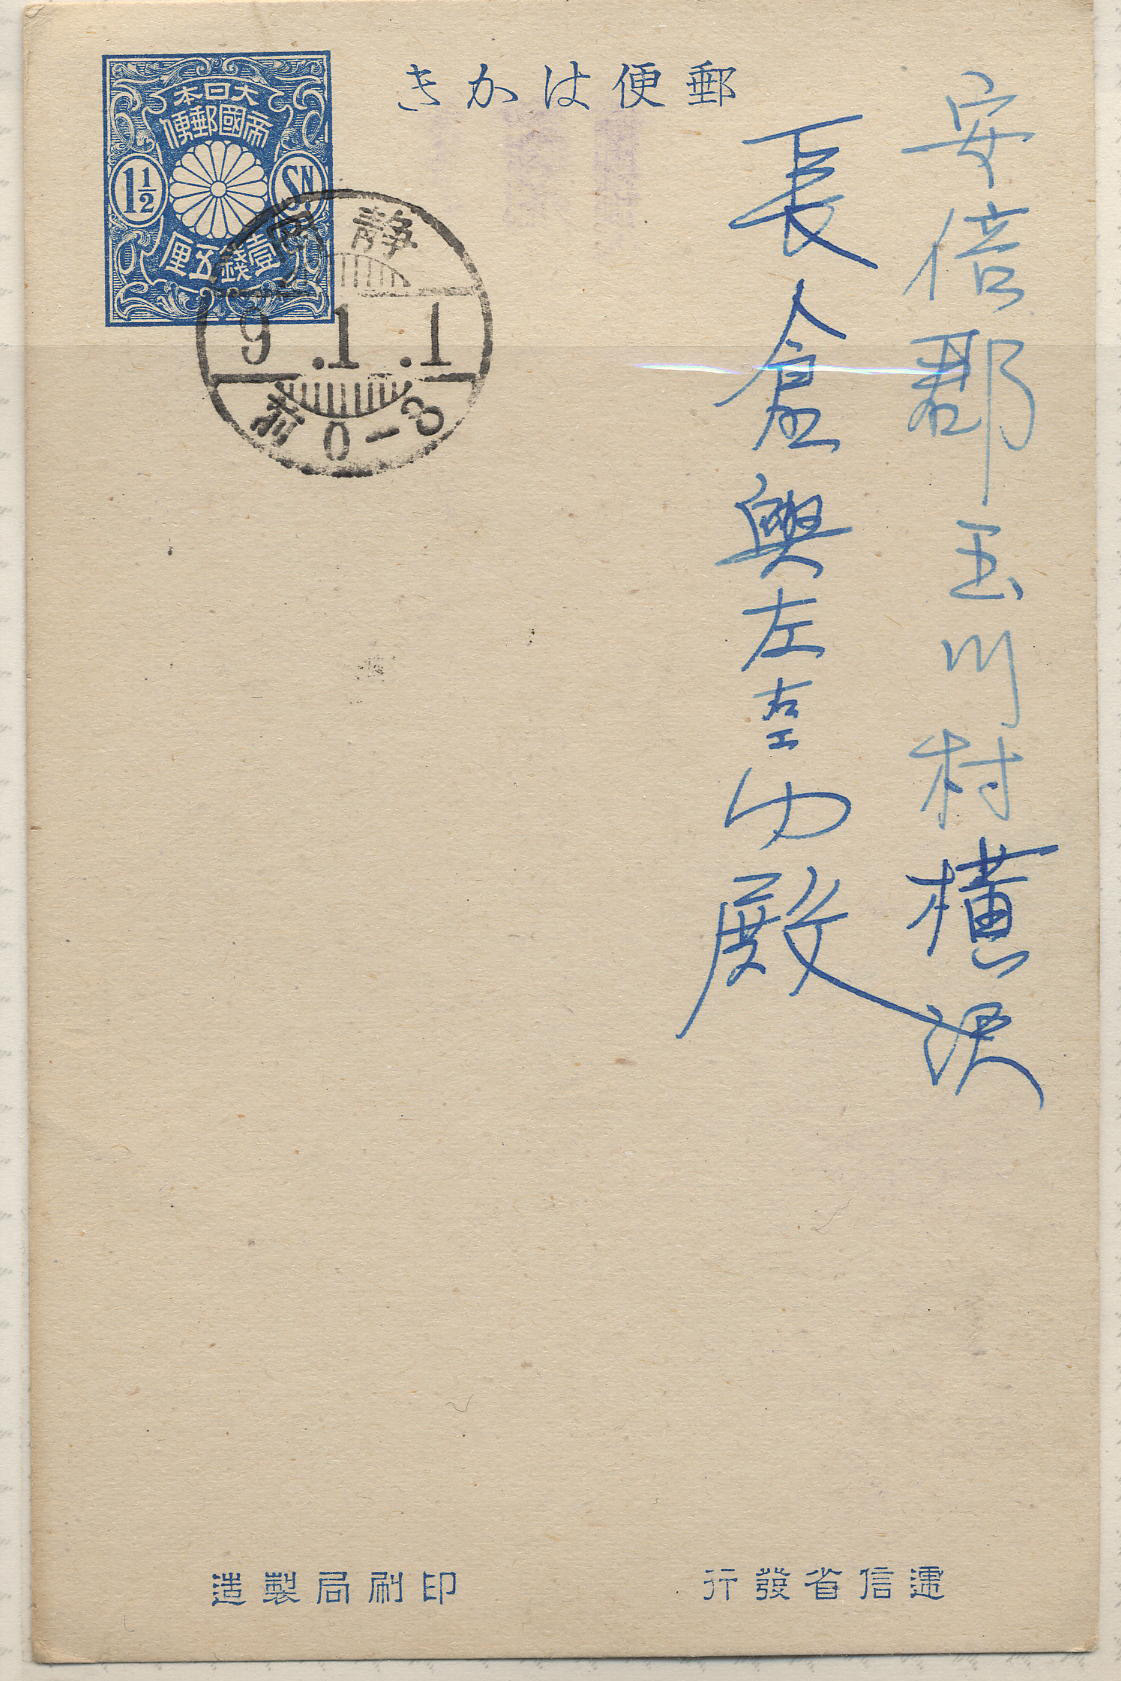 郵便はかき
大日本
帝國郵便
1½
SN
壹錢五厘
静岡
9.1.1
前0-8
安倍郡玉川村横沢
長倉興左エ門殿
遞信省發行
印刷局製造